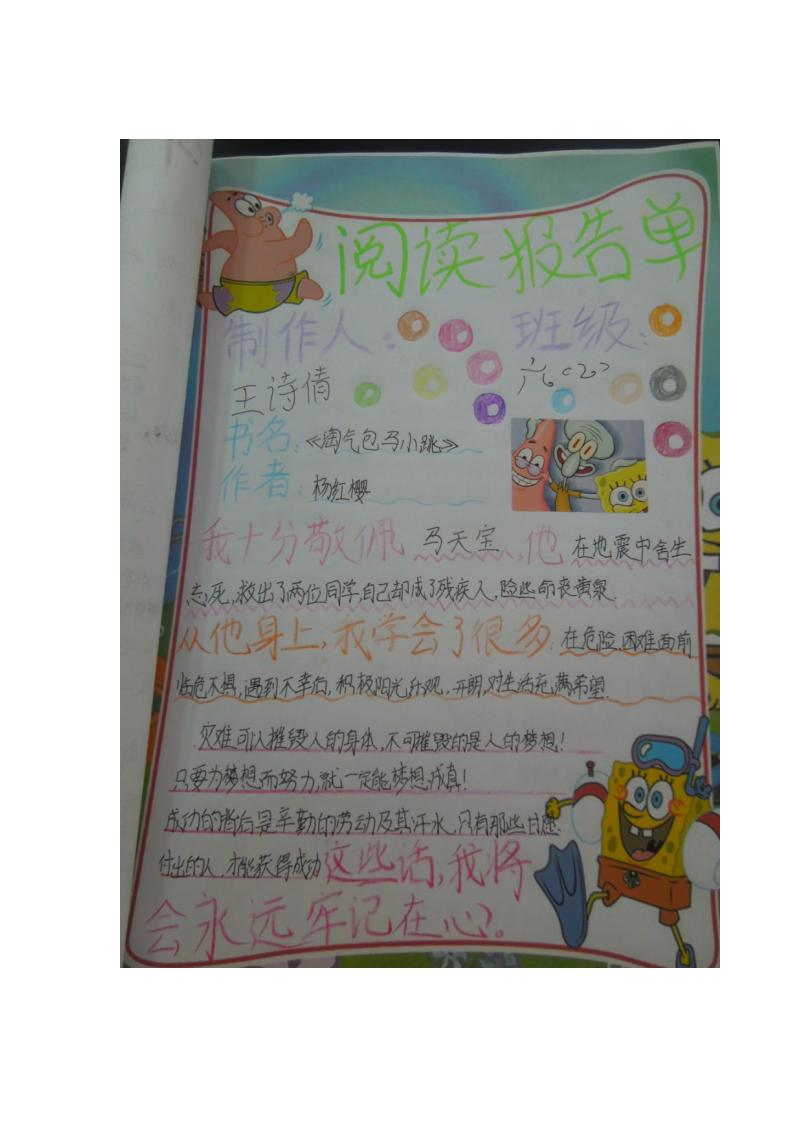 阅读报告单
制作人： 班级：
王诗倩 六（2）
书名：《淘气包马小跳》
作者：杨红樱
我十分敬佩 马天宝，他 在地震中舍生
忘死，救出了两位同学，自己却成了残疾人，险些命丧黄泉。
从他身上，我学会了很多：在危险、困难面前
临危不惧，遇到不幸后，积极阳光乐观，开朗，对生活充满希望。
灾难可以摧毁人的身体，不可摧毁的是人的梦想！
只要为梦想而努力，就一定能梦想成真！
成功的背后是辛勤的劳动及其汗水，只有那些甘愿
付出的人，才能获得成功 这些话，我将
会永远牢记在心。